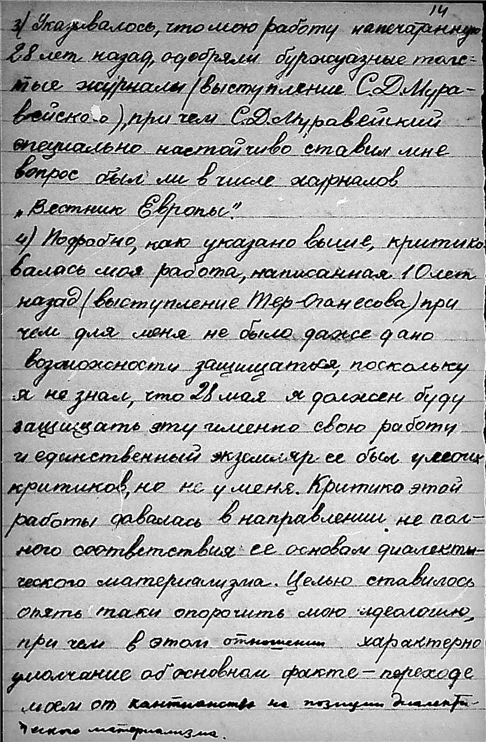 14
3) Указывалось, что мою работу напечатанную
28 лет назад, одобряли буржуазные толс-
тые журналы (выступление С.Д. Мура-
вейского), при чем С.Д. Муравейский
специально настойчиво ставил мне
вопрос был ли в числе журналов
„Вестник Европы“.
4) Подробно, как указано выше, критико-
валась моя работа, написанная 10 лет
назад (выступление Тер-Оганесова) при
чем для меня не было даже дано
возможности защищаться, поскольку
я не знал, что 28 мая я должен буду
защищать эту именно свою работу
и единственный экземляр ее был у моих
критиков, но не у меня. Критика этой
работы давалась в направлении не пол-
ного соответствия ее основам диалекти-
ческого материализма. Целью ставилось
опять таки опорочить мою идеологию,
при чем в этом отношении характерно
умолчание об основном факте – переходе
моем от кантианства на позиции диалекти-
ческого материализма.